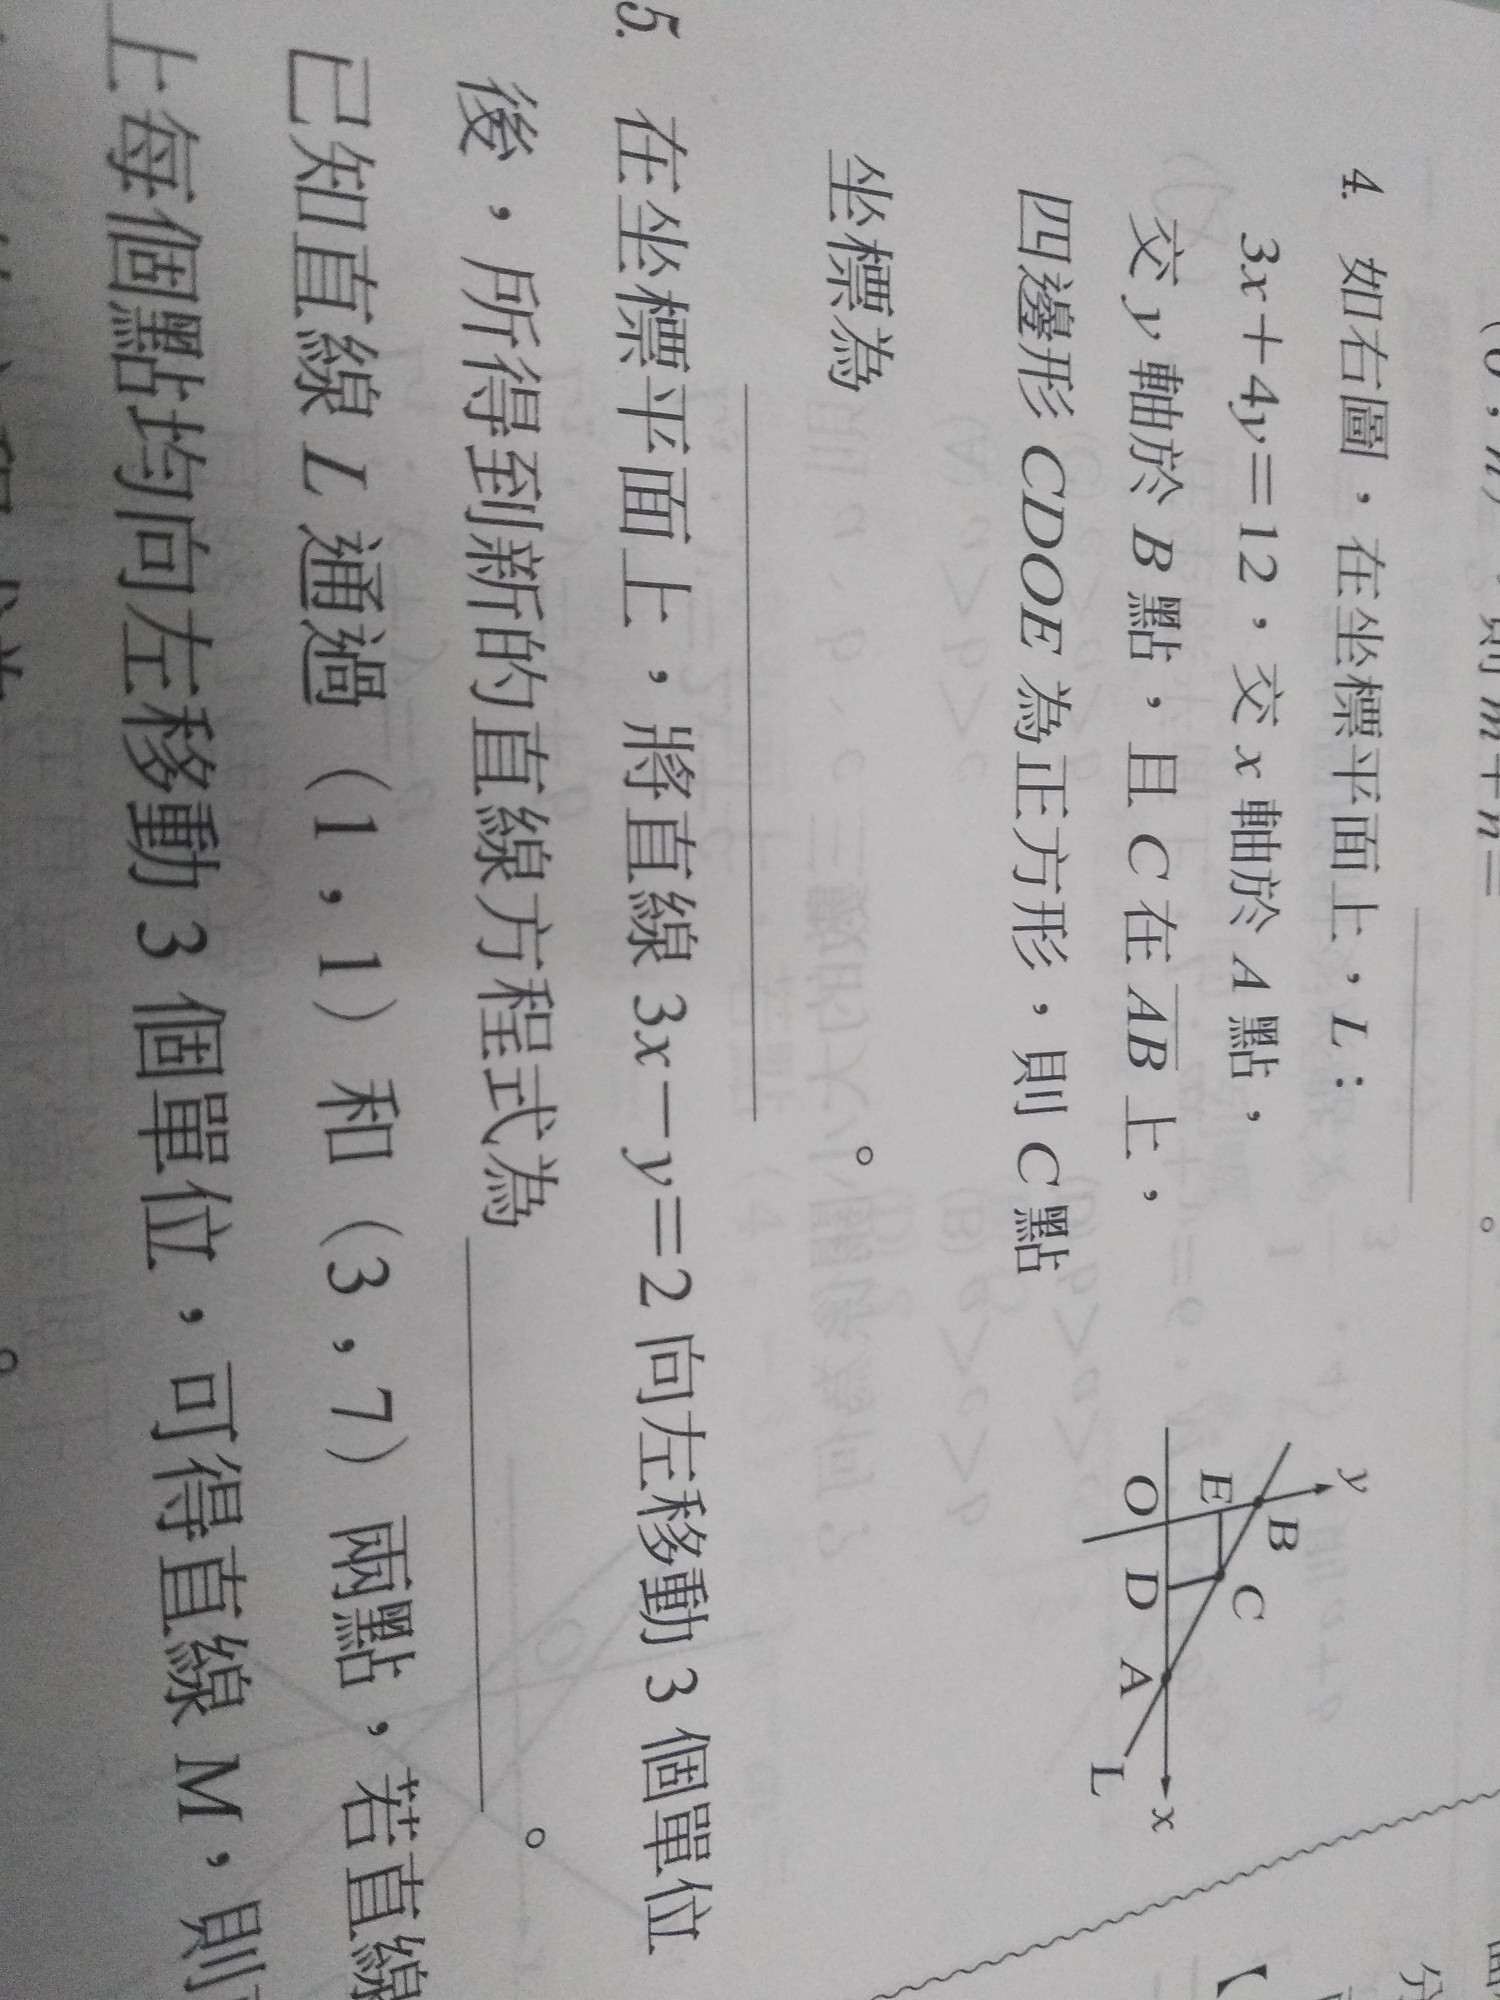 4. 如右圖，在坐標平面上，L：
3x＋4y＝12，交 x 軸於 A 點，
交 y 軸於 B 點，且 C 在 AB 上，
四邊形 CDOE 為正方形，則 C 點
坐標為　　　　。
y
B
E
C
O
D
A
L
x
5. 在坐標平面上，將直線 3x－y＝2 向左移動 3 個單位
後，所得到新的直線方程式為　　　　。
已知直線 L 通過（1，1）和（3，7）兩點，若直線
上每個點均向左移動 3 個單位，可得直線 M，則